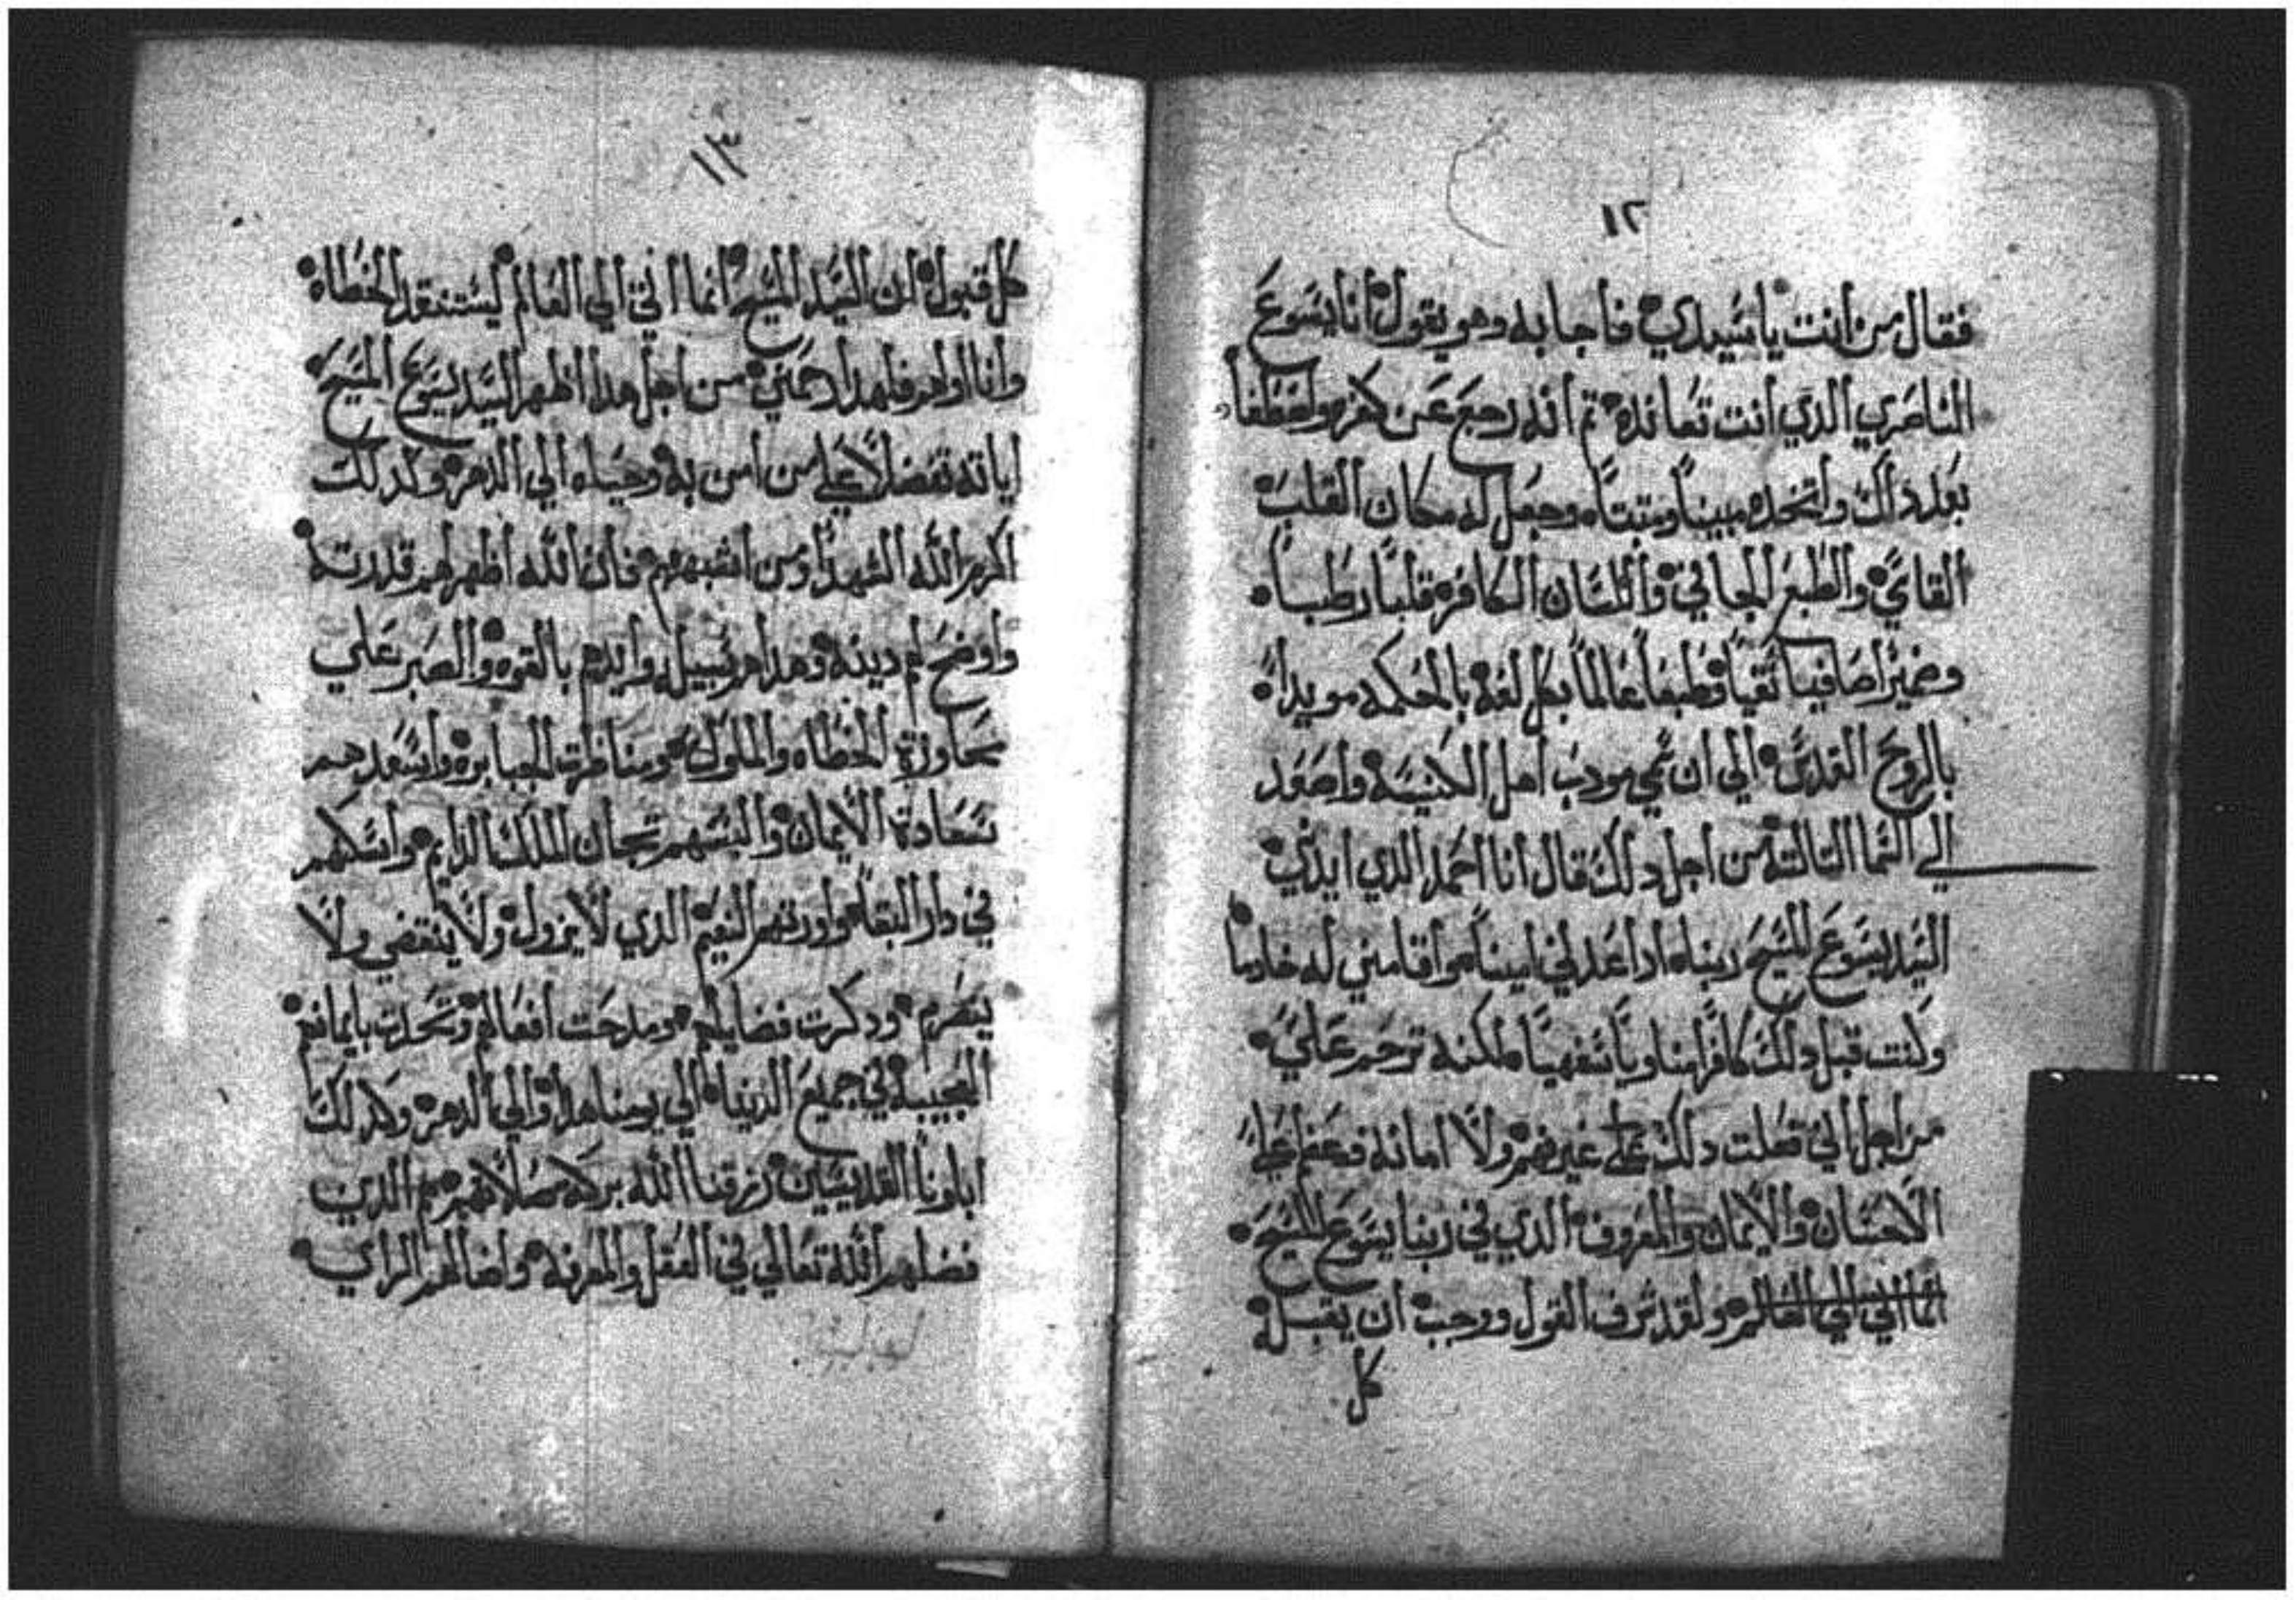 ١٢
فقال من انت يا سيدي فاجابه وهو يقول انا يسوع
الناصري الذي انت تعانده تم انه رجع عن كفره واصطفاه
بعد دالك واتخده مبينا ومتبتا وجعل له مكان القلب
القاسي والطبع الجافي واللسان الكافر قلبا رطبا
وضميرا صافيا نقيا وطبعا عالما بكل لغه بالحكمه مويدا
بالروح القدس الي ان سمي مودب اهل الكنيسه واصعد
الي السما التالته من اجل دلك قال انا احمد الذي ايدني
السيد يسوع المسيح ربنا اداعدني امينا واقامني له خادما
وكنت قبل دلك كافرا سفهيا لكنه ترحم علي
من اجل اني فعلت دلك علي غير فهم ولا امانه فعظم علي
الاحسان والايمان والمعروف الذي في ربنا يسوع المسيح
انما اتي الي العالم ولقد شرف القول ووجب ان يقبله
كل
١٣
كل قبول ان السيد المسيح انما اتي الي العالم ليستنقد الخطاه
وانا اولهم فلهدا رحمني من اجل هدا اظهر السيد يسوع المسيح
اياته تفضلا علي من امن به وحياه الي الدهر وكدلك
اكرم الله الشهدا ومن اشبههم فان الله اظهر لهم قدرته
واوضح لهم دينه وهداهم سبيله وايدهم بالقوه والصبر علي
محاورة الخطاه والملوك ومنافرت الجبابره واسعدهم
سعادة الايمان والبسهم تيجان الملك الدايم واسكنهم
في دار البقا واورتهم النعيم الذي لا يزول ولا ينقضي ولا
ينصرم ودكرت فضايلهم ومدحت افعالهم وتحدت بايمانهم
العجيبه في جميع الدنيا الي يومنا هدا والي الدهر وكدلك
اباونا القديسين رزقنا الله بركة صلاتهم هم الدين
فضلهم الله تعالي في العقل والمعرفه واضا لهم الراي